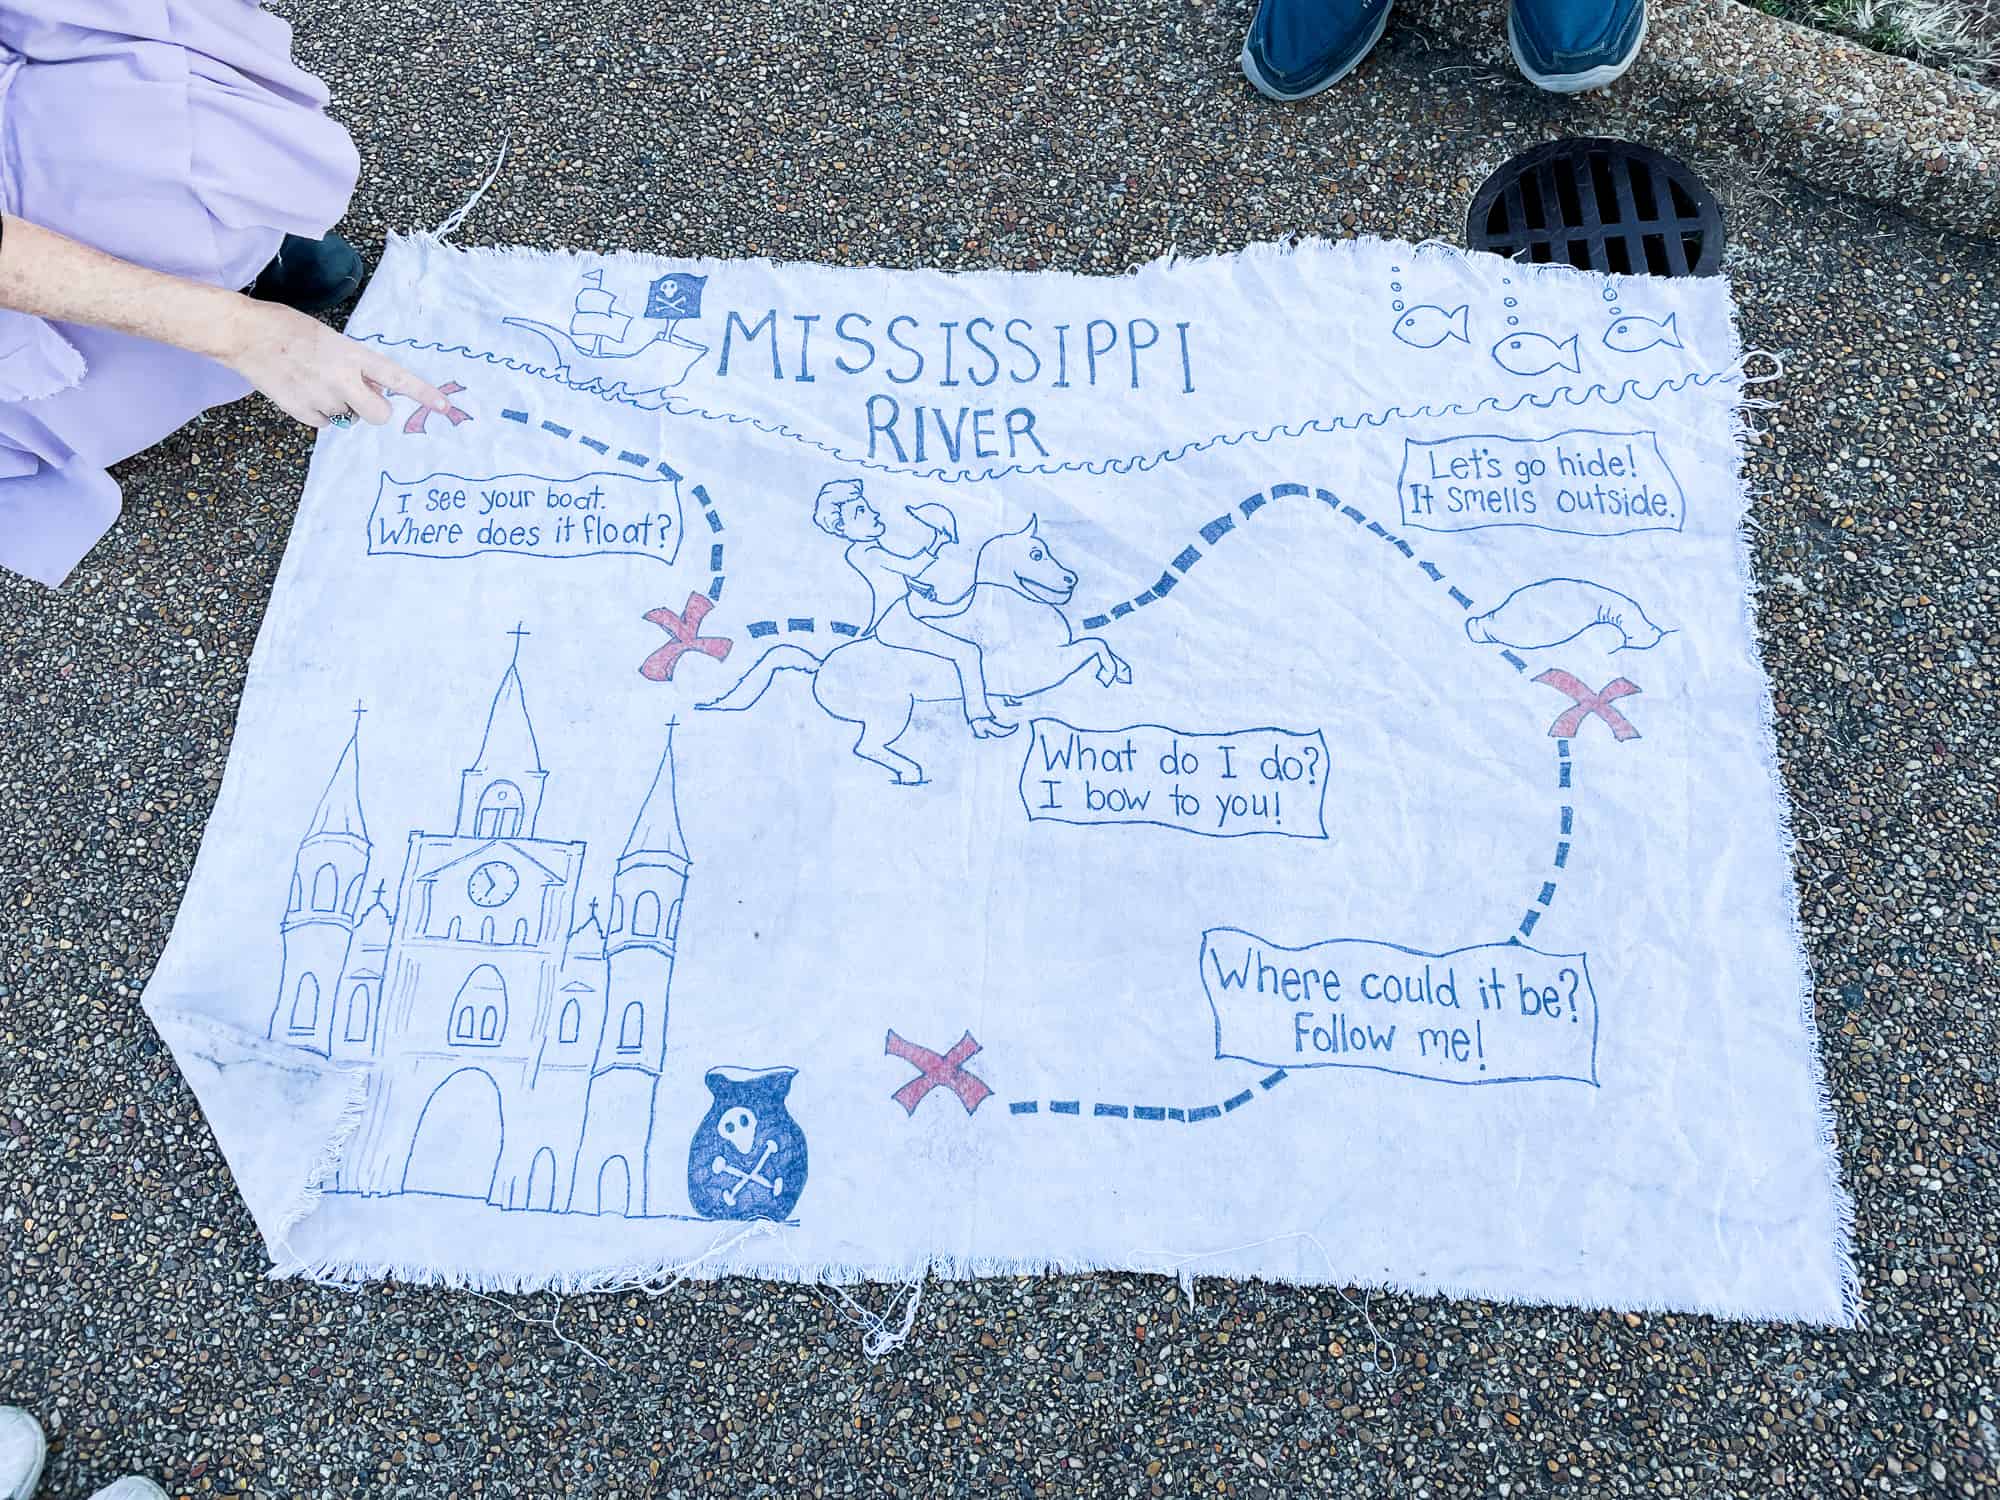 MISSISSIPPI
RIVER
I see your boat.
Where does it float?
Let's go hide!
It smells outside.
What do I do?
I bow to you!
Where could it be?
Follow me!